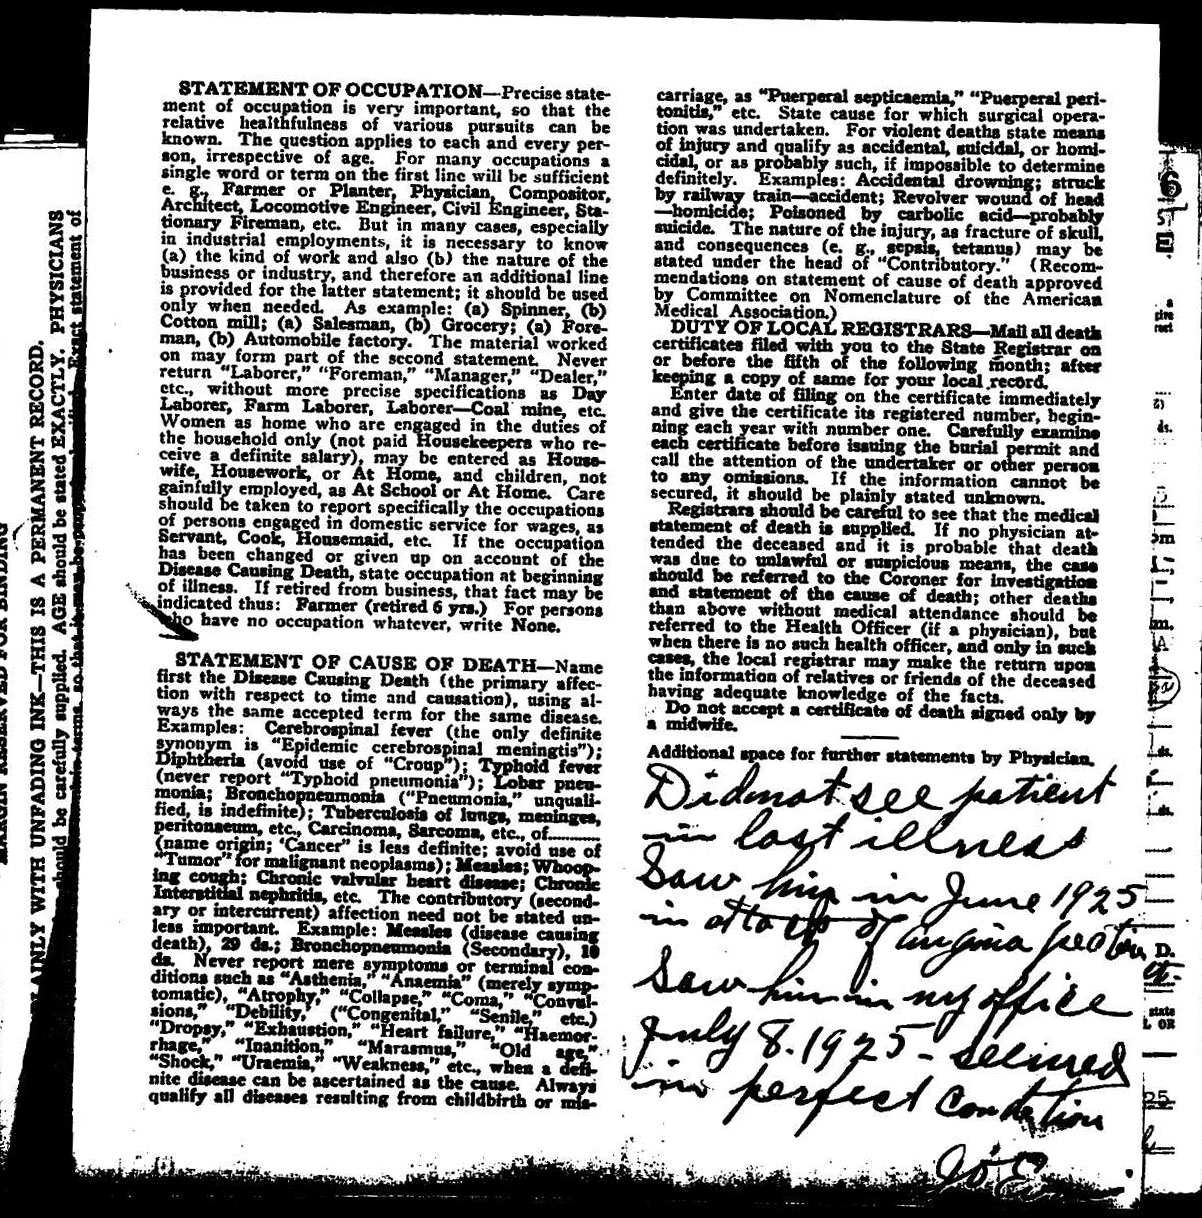 STATEMENT OF OCCUPATION—Precise state-
ment of occupation is very important, so that the
relative healthfulness of various pursuits can be
known. The question applies to each and every per-
son, irrespective of age. For many occupations a
single word or term on the first line will be sufficient
e. g., Farmer or Planter, Physician, Compositor,
Architect, Locomotive Engineer, Civil Engineer, Sta-
tionary Fireman, etc. But in many cases, especially
in industrial employments, it is necessary to know
(a) the kind of work and also (b) the nature of the
business or industry, and therefore an additional line
is provided for the latter statement; it should be used
only when needed. As example: (a) Spinner, (b)
Cotton mill; (a) Salesman, (b) Grocery; (a) Fore-
man, (b) Automobile factory. The material worked
on may form part of the second statement. Never
return "Laborer," "Foreman," "Manager," "Dealer,"
etc., without more precise specifications as Day
Laborer, Farm Laborer, Laborer—Coal mine, etc.
Women as home who are engaged in the duties of
the household only (not paid Housekeepers who re-
ceive a definite salary), may be entered as House-
wife, Housework, or At Home, and children, not
gainfully employed, as At School or At Home. Care
should be taken to report specifically the occupations
of persons engaged in domestic service for wages, as
Servant, Cook, Housemaid, etc. If the occupation
has been changed or given up on account of the
Disease Causing Death, state occupation at beginning
of illness. If retired from business, that fact may be
indicated thus: Farmer (retired 6 yrs.) For persons
who have no occupation whatever, write None.
STATEMENT OF CAUSE OF DEATH—Name
first the Disease Causing Death (the primary affec-
tion with respect to time and causation), using al-
ways the same accepted term for the same disease.
Examples: Cerebrospinal fever (the only definite
synonym is "Epidemic cerebrospinal meningtis");
Diphtheria (avoid use of "Croup"); Typhoid fever
(never report "Typhoid pneumonia"); Lobar pneu-
monia; Bronchopneumonia ("Pneumonia," unquali-
fied, is indefinite); Tuberculosis of lungs, meninges,
peritonaeum, etc., Carcinoma, Sarcoma, etc., of...........
(name origin; 'Cancer" is less definite; avoid use of
"Tumor" for malignant neoplasms); Measles; Whoop-
ing cough; Chronic valvular heart disease; Chronic
Interstitial nephritis, etc. The contributory (second-
ary or intercurrent) affection need not be stated un-
less important. Example: Measles (disease causing
death), 29 ds.; Bronchopneumonia (Secondary), 10
ds. Never report mere symptoms or terminal con-
ditions such as "Asthenia," "Anaemia" (merely symp-
tomatic), "Atrophy," "Collapse," "Coma," "Convul-
sions," "Debility," ("Congenital," "Senile," etc.)
"Dropsy," "Exhaustion," "Heart failure," "Haemor-
rhage," "Inanition," "Marasmus," "Old age,"
"Shock," "Uraemia," "Weakness," etc., when a defi-
nite disease can be ascertained as the cause. Always
qualify all diseases resulting from childbirth or mis-
carriage, as "Puerperal septicaemia," "Puerperal peri-
tonitis," etc. State cause for which surgical opera-
tion was undertaken. For violent deaths state means
of injury and qualify as accidental, suicidal, or homi-
cidal, or as probably such, if impossible to determine
definitely. Examples: Accidental drowning; struck
by railway train—accident; Revolver wound of head
—homicide; Poisoned by carbolic acid—probably
suicide. The nature of the injury, as fracture of skull,
and consequences (e. g., sepsis, tetanus) may be
stated under the head of "Contributory." (Recom-
mendations on statement of cause of death approved
by Committee on Nomenclature of the American
Medical Association.)
DUTY OF LOCAL REGISTRARS—Mail all death
certificates filed with you to the State Registrar on
or before the fifth of the following month; after
keeping a copy of same for your local record.
Enter date of filing on the certificate immediately
and give the certificate its registered number, begin-
ning each year with number one. Carefully examine
each certificate before issuing the burial permit and
call the attention of the undertaker or other person
to any omissions. If the information cannot be
secured, it should be plainly stated unknown.
Registrars should be careful to see that the medical
statement of death is supplied. If no physician at-
tended the deceased and it is probable that death
was due to unlawful or suspicious means, the case
should be referred to the Coroner for investigation
and statement of the cause of death; other deaths
than above without medical attendance should be
referred to the Health Officer (if a physician), but
when there is no such health officer, and only in such
cases, the local registrar may make the return upon
the information of relatives or friends of the deceased
having adequate knowledge of the facts.
Do not accept a certificate of death signed only by
a midwife.
Additional space for further statements by Physician.
Did not see patient
in last illness
Saw him in June 1925
in attack of angina pectoris
Saw him in my office
July 8. 1925 - seemed
in perfect condition
PLAINLY WITH UNFADING INK—THIS IS A PERMANENT RECORD.
should be carefully supplied. AGE should be stated EXACTLY. PHYSICIANS
Exact statement of
MARGIN RESERVED FOR BINDING